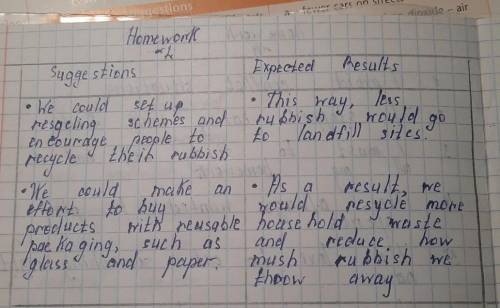 fewer cars on streets
dioxide – air
Homework
Suggestions
Expected Results
• We could set up
resycling schemes and
encourage people to
recycle theih rubbish
• This way, less
rubbish would go
to landfill sites.
• We could make an
effort to buy
products with reusable
packaging, such as
glass and paper.
• As a result, we
would resycle more
household waste
and reduce how
mush rubbish we
thoow away